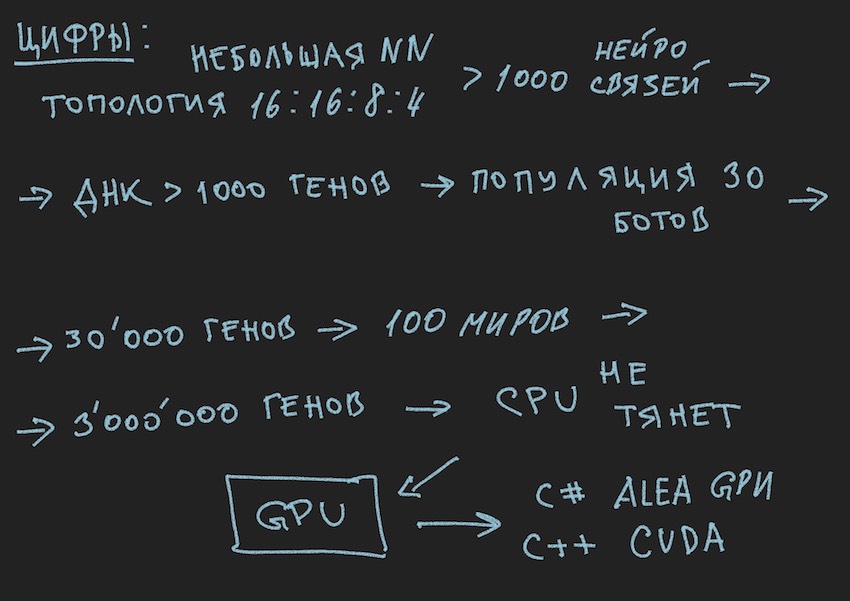 ЦИФРЫ:
НЕБОЛЬШАЯ NN
ТОПОЛОГИЯ 16:16:8:4
> 1000 НЕЙРО
СВЯЗЕЙ →
→ ДНК > 1000 ГЕНОВ → ПОПУЛЯЦИЯ 30
БОТОВ →
→ 30'000 ГЕНОВ → 100 МИРОВ →
→ 3'000'000 ГЕНОВ → CPU НЕ
ТЯНЕТ
GPU → C# ALEA GPИ
C++ CUDA